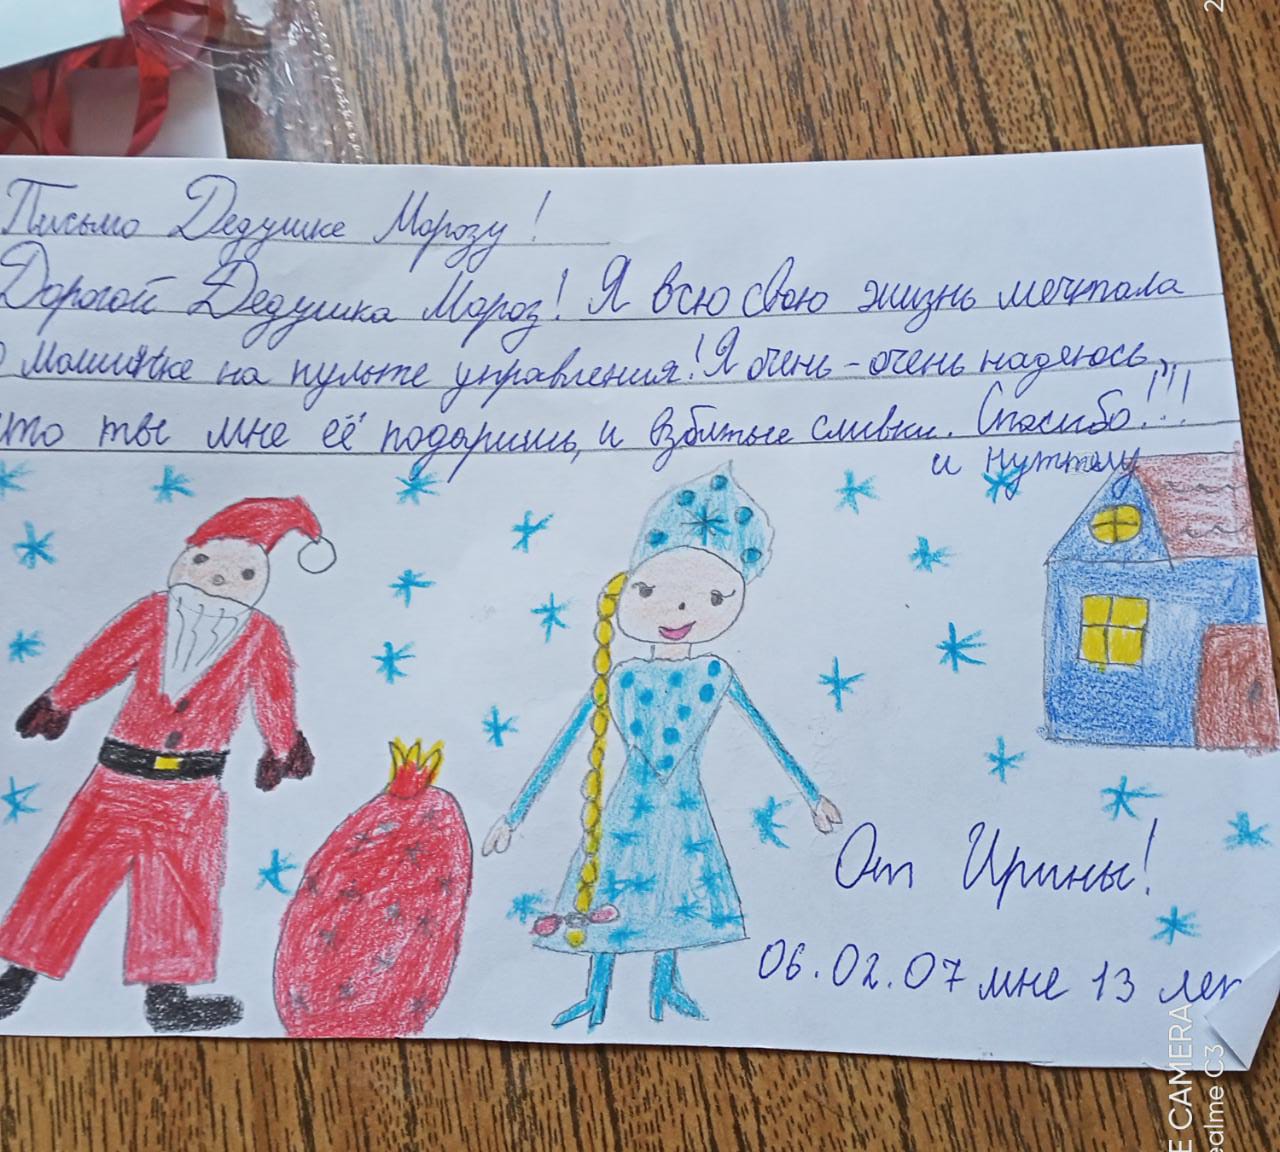 Письмо Дедушке Морозу!
Дорогой Дедушка Мороз! Я всю свою жизнь мечтала
о машинке на пульте управления! Я очень-очень надеюсь,
что ты мне её подаришь, и взбитые сливки. Спасибо!!!
и нутеллу
От Ирины!
06.02.07 мне 13 лет
E CAMERA
ealme C3
2